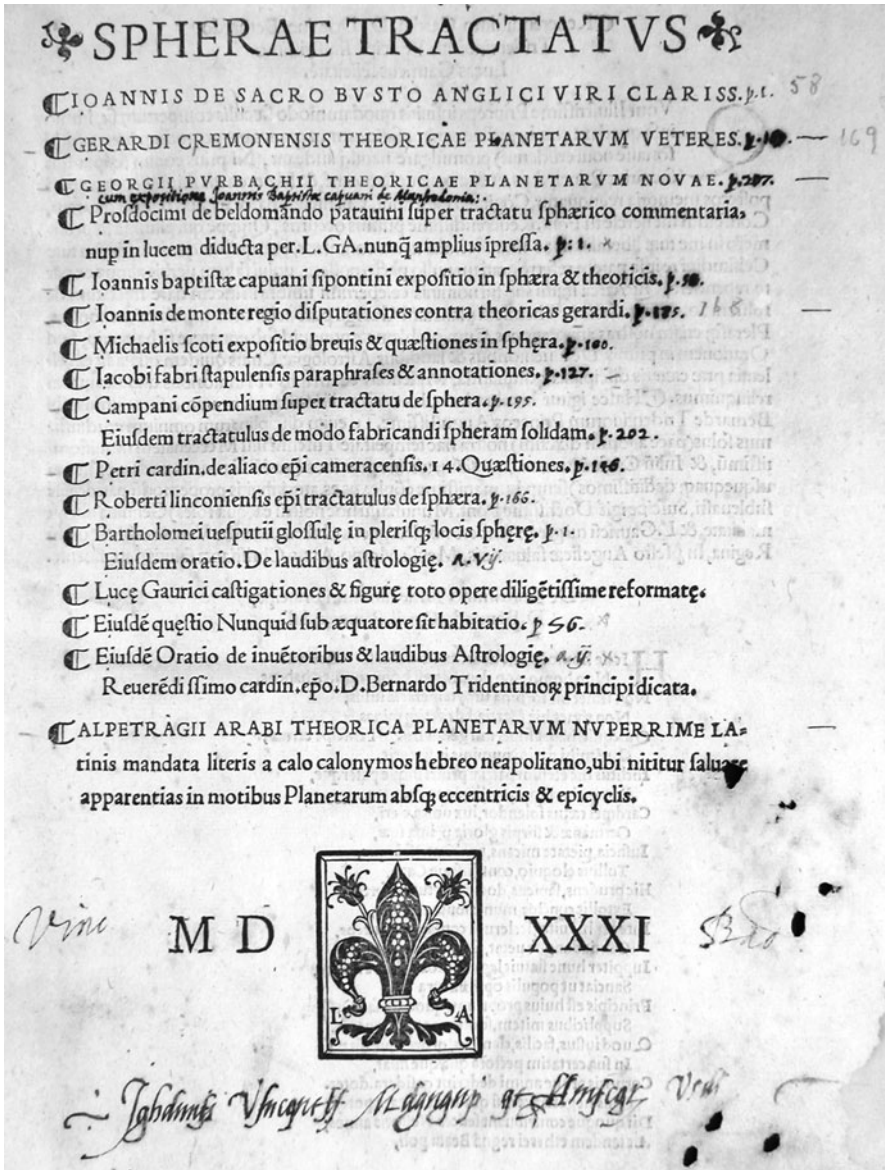 SPHERAE TRACTATVS
IOANNIS DE SACRO BVSTO ANGLICI VIRI CLARISS. p.1. 58
GERARDI CREMONENSIS THEORICAE PLANETARVM VETERES. 169
GEORGII PVRBACHII THEORICAE PLANETARVM NOVAE. p.207.
cum expositione Joannis Baptistæ capuani de Manfredonia:
Prosdocimi de beldomãndo patauini super tractatu sphærico commentaria,
nup in lucem diducta per. L. GA. nunq̃ amplius ipressa. p: 1.
Ioannis baptistæ capuani sipontini expositio in sphæra & theoricis. p.58.
Ioannis de monte regio disputationes contra theoricas gerardi. p.175. 168
Michaelis scoti expositio breuis & quæstiones in sphęra. p.100.
Iacobi fabri stapulensis paraphrases & annotationes. p.127.
Campani cõpendium super tractatu de sphera. p.195.
Eiusdem tractatulus de modo fabricandi spheram solidam. p.202.
Petri cardin. de aliaco ep̃i cameracensis. 14. Quæstiones. p.146.
Roberti linconiensis ep̃i tractatulus de sphæra. p.166.
Bartholomei uesputii glossulę in plerisq; locis sphęrę. p.1.
Eiusdem oratio. De laudibus astrologię. a.vij.
Lucę Gaurici castigationes & figurę toto opere diligẽtissime reformatę.
Eiusdẽ quęstio Nunquid sub æquatore sit habitatio. p 56.
Eiusdẽ Oratio de inuẽtoribus & laudibus Astrologię. a.ij.
Reuerẽdissimo cardin. ep̃o. D. Bernardo Tridentinoꝝ principi dicata.
ALPETRAGII ARABI THEORICA PLANETARVM NVPERRIME LA-
tinis mandata literis a calo calonymos hebreo neapolitano, ubi nititur saluare
apparentias in motibus Planetarum absq; eccentricis & epicyclis.
M D XXXI
I. A